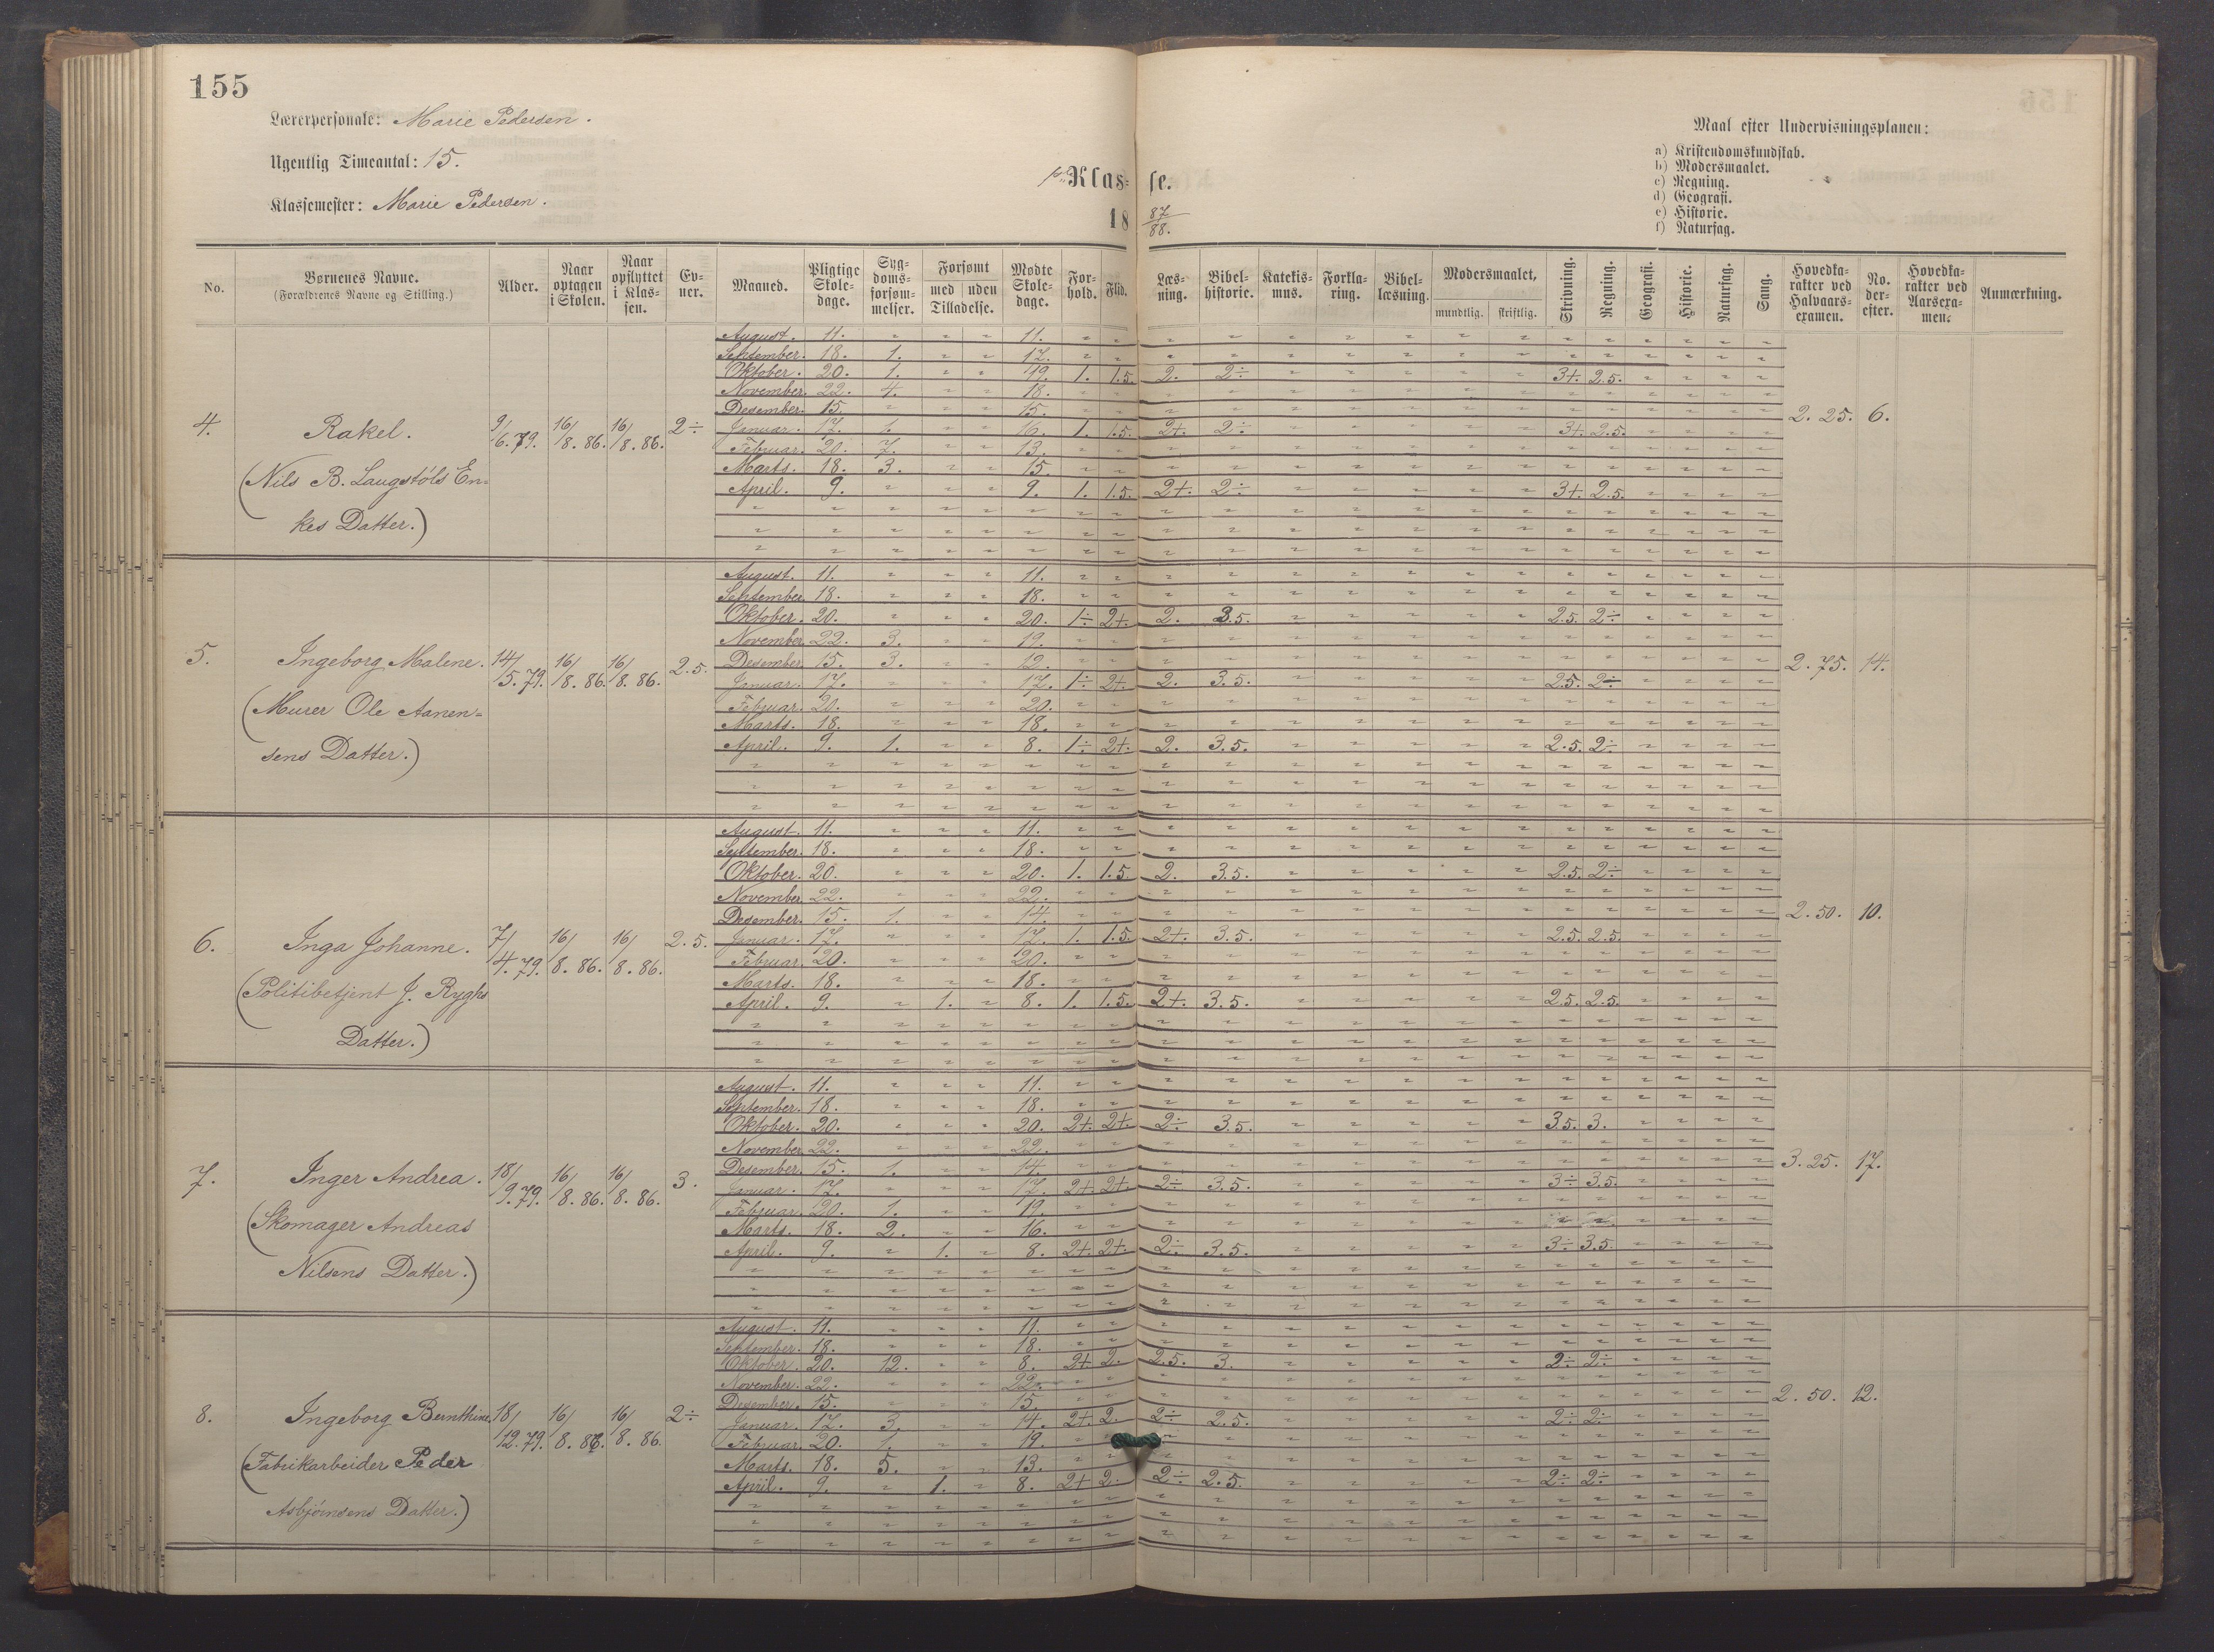 155
Lærerpersonale: Marie Pedersen.
Ugentlig Timeantal: 15.
Klassemester: Marie Pedersen.
Klas= se.
18 87/88.
Maal efter Undervisningsplanen:
a) Kristendomskundskab.
b) Modersmaalet.
c) Regning.
d) Geografi.
e) Historie.
f) Naturfag.
No. Børnenes Navne. (Forældrenes Navne og Stilling.) Alder. Naar optagen i Skolen. Naar opflyttet i Klas-sen. Ev-ner. Maaned. Pligtige Skole-dage. Syg-doms-forsøm-melser. Forsømt med uden Tilladelse. Mødte Skole-dage. For-hold. Flid. Læs-ning. Bibel-historie. Katekis-mus. Forkla-ring. Bibel-læsning. Modersmaalet, mundtlig. skriftlig. Skrivning. Regning. Geografi. Historie. Naturfag. Sang. Hovedka-rakter ved Halvaars-examen. No. der-efter. Hovedka-rakter ved Aarsexa-men. Anmærkning.
4. Rakel. 9/6.79. 16/8.86. 16/8.86. 2÷ 2.25. 6.
(Nils B. Laugstøls En-
kes Datter.)
August. 11. 11.
September. 18. 1. 17.
Oktober. 20. 1. 19. 1. 1.5. 2. 2÷ 3+. 2.5.
November. 22. 4. 18.
Desember. 15. 15.
Januar. 17. 1. 16. 1. 1.5. 2+. 2÷ 3+. 2.5.
Februar. 20. 7. 13.
Marts. 18. 3. 15.
April. 9. 9. 1. 1.5. 2+. 2÷ 3+. 2.5.
5. Ingeborg Malene. 14/5.79. 16/8.86. 16/8.86. 2.5. 2.75. 14.
(Murer Ole Aanen=
sens Datter.)
August. 11. 11.
September. 18. 18.
Oktober. 20. 20. 1÷ 2+. 2. 3.5. 2.5. 2÷
November. 22. 3. 19.
Desember. 15. 3. 12.
Januar. 17. 17. 1÷ 2+. 2. 3.5. 2.5. 2÷
Februar. 20. 20.
Marts. 18. 18.
April. 9. 1. 8. 1÷ 2+. 2. 3.5. 2.5. 2÷
6. Inga Johanne. 7/4.79. 16/8.86. 16/8.86. 2.5. 2.50. 10.
(Politibetjent J. Ryghs
Datter.)
August. 11. 11.
September. 18. 18.
Oktober. 20. 20. 1. 1.5. 2. 3.5. 2.5. 2÷
November. 22. 22.
Desember. 15. 1. 14.
Januar. 17. 17. 1. 1.5. 2+. 3.5. 2.5. 2.5.
Februar. 20. 20.
Marts. 18. 18.
April. 9. 1. 8. 1. 1.5. 2+. 3.5. 2.5. 2.5.
7. Inger Andrea. 18/9.79. 16/8.86. 16/8.86. 3. 3.25. 17.
(Skomager Andreas
Nilsens Datter.)
August. 11. 11.
September. 18. 18.
Oktober. 20. 20. 2+. 2+. 2÷ 3.5. 3.5. 3.
November. 22. 22.
Desember. 15. 1. 14.
Januar. 17. 17. 2+. 2+. 2÷ 3.5. 3÷ 3.5.
Februar. 20. 1. 19.
Marts. 18. 2. 16.
April. 9. 1. 8. 2+. 2+. 2÷ 3.5. 3÷ 3.5.
8. Ingeborg Bernthine. 18/12.79. 16/8.86. 16/8.86. 2÷ 2.50. 12.
(Fabrikarbeider Peder
Asbjørnsens Datter.)
August. 11. 11.
September. 18. 18.
Oktober. 20. 12. 8. 2+. 2. 2.5. 3. 2÷ 2÷
November. 22. 22.
Desember. 15. 15.
Januar. 17. 3. 14. 2+. 2. 2÷ 2.5. 2÷ 2÷
Februar. 20. 1. 19.
Marts. 18. 5. 13.
April. 9. 1. 8. 2+ 2. 2÷ 2.5. 2÷ 2÷